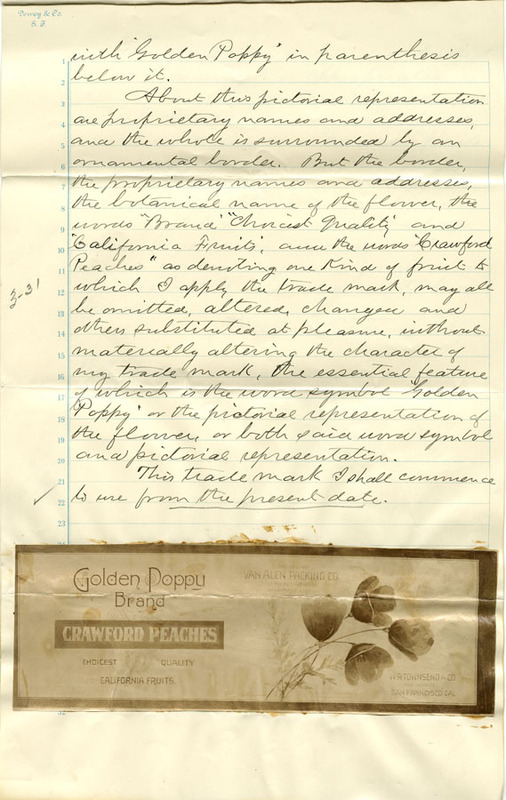 Dewey & Co.
S. F.
with "Golden Poppy" in parenthesis
below it.
About this pictorial representation
are proprietary names and addresses,
and the whole is surrounded by an
ornamental border. But the border,
the proprietary names and addresses,
the botanical name of the flower, the
words "Brand" "Choicest Quality" and
"California Fruits", and the words "Crawford
Peaches" as denoting one kind of fruit to
which I apply the trade mark, may all
be omitted, altered, changed and
others substituted at pleasure, without
materially altering the character of
my trade mark, the essential feature
of which is the word symbol "Golden
Poppy" or the pictorial representation of
the flower, or both said word symbol
and pictorial representation.
This trade mark I shall commence
to use from the present date.
3-31
1
2
3
4
5
6
7
8
9
10
11
12
13
14
15
16
17
18
19
20
21
22
23
32
Golden Poppy
Brand
CRAWFORD PEACHES
CHOICEST QUALITY
CALIFORNIA FRUITS.
VAN ALEN PACKING CO.
W.R. TOWNSEND & CO
SAN FRANCISCO, CAL.